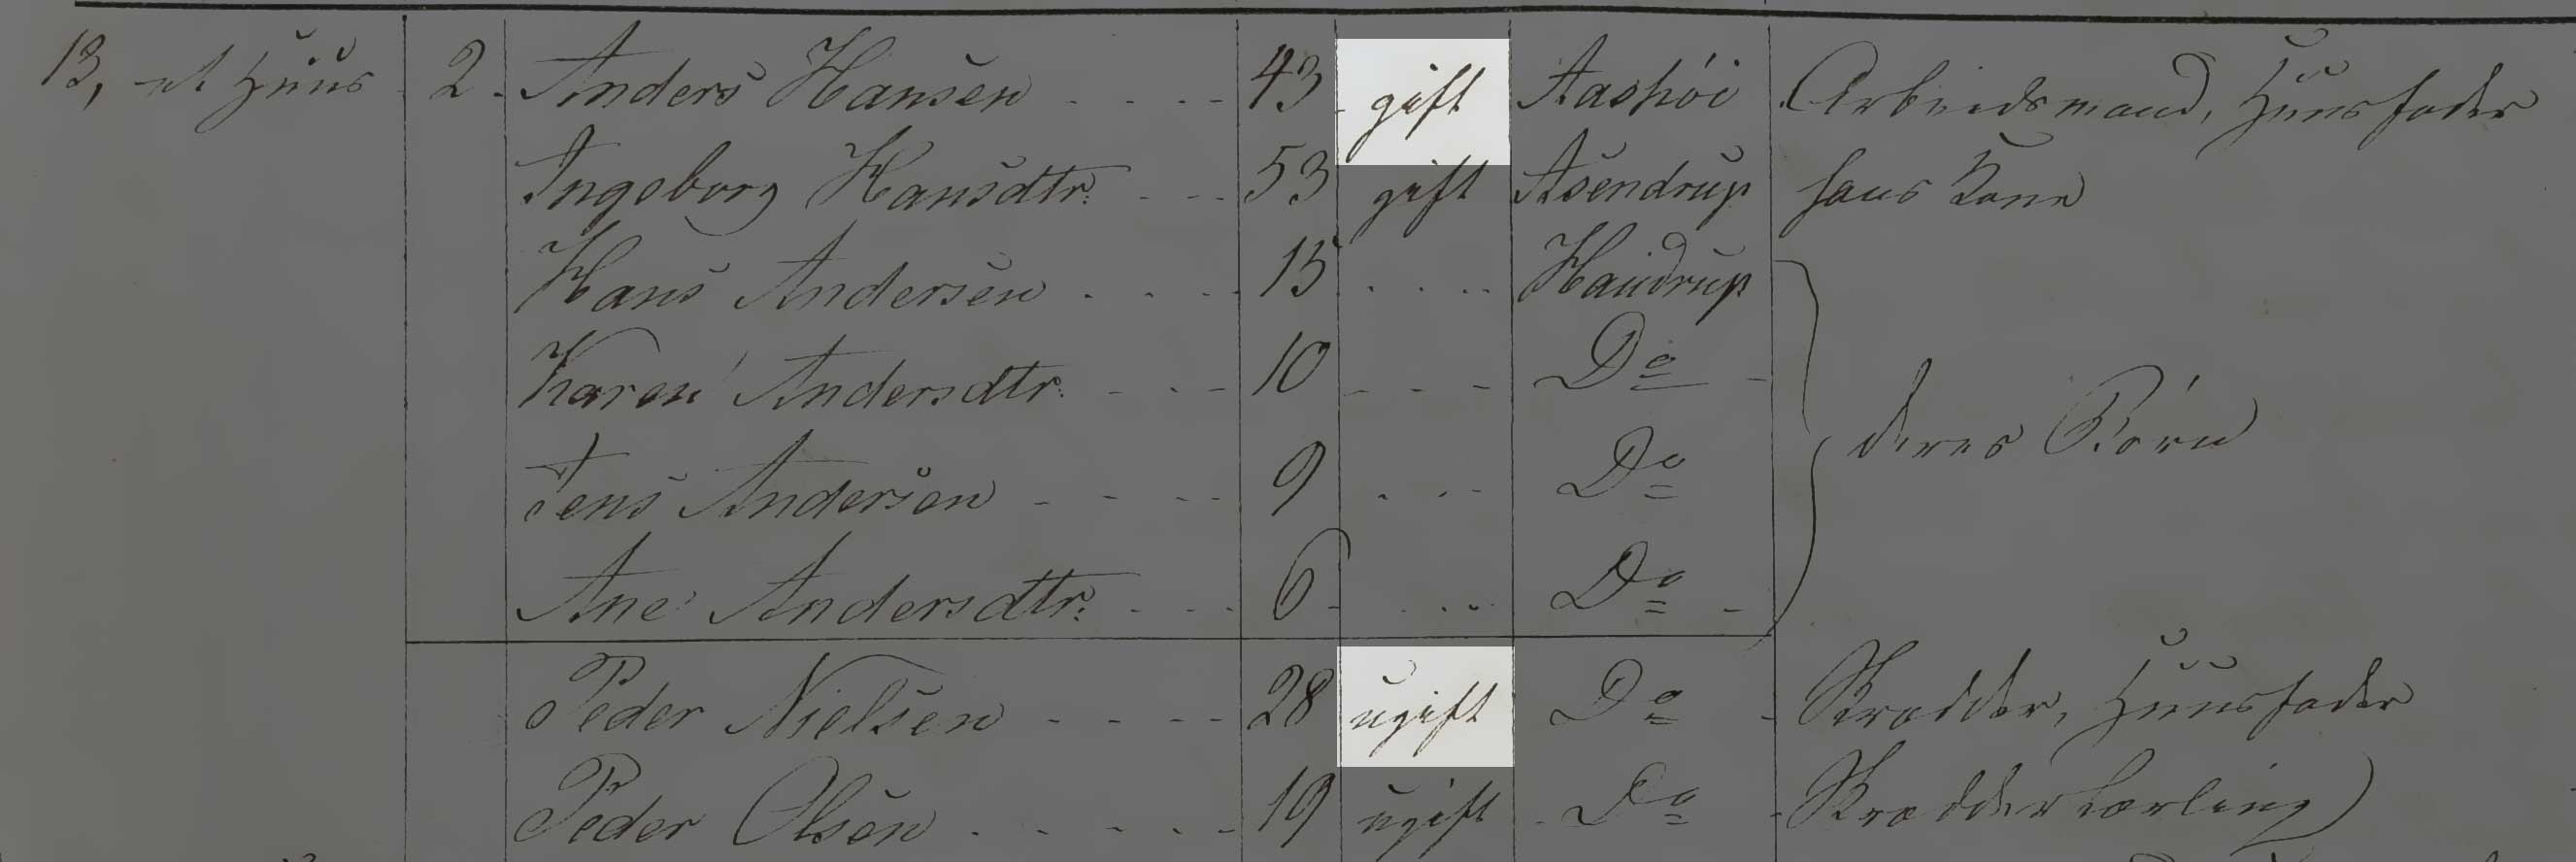 13, et Huus 2. Anders Hansen 43 gift Aashöi Arbeidsmand, Huusfader
Ingeborg Hansdtr: 53 gift Asendrup hans Kone
Hans Andersen 15 Handrup
Karen Andersdtr: 10 Do
deres Börn
Jens Andersen 9 Do
Ane Andersdtr: 6 Do
Peder Nielsen 28 ugift Do Skrædder, Huusfader
Peder Olsen 19 ugift Do Skrædderlærling